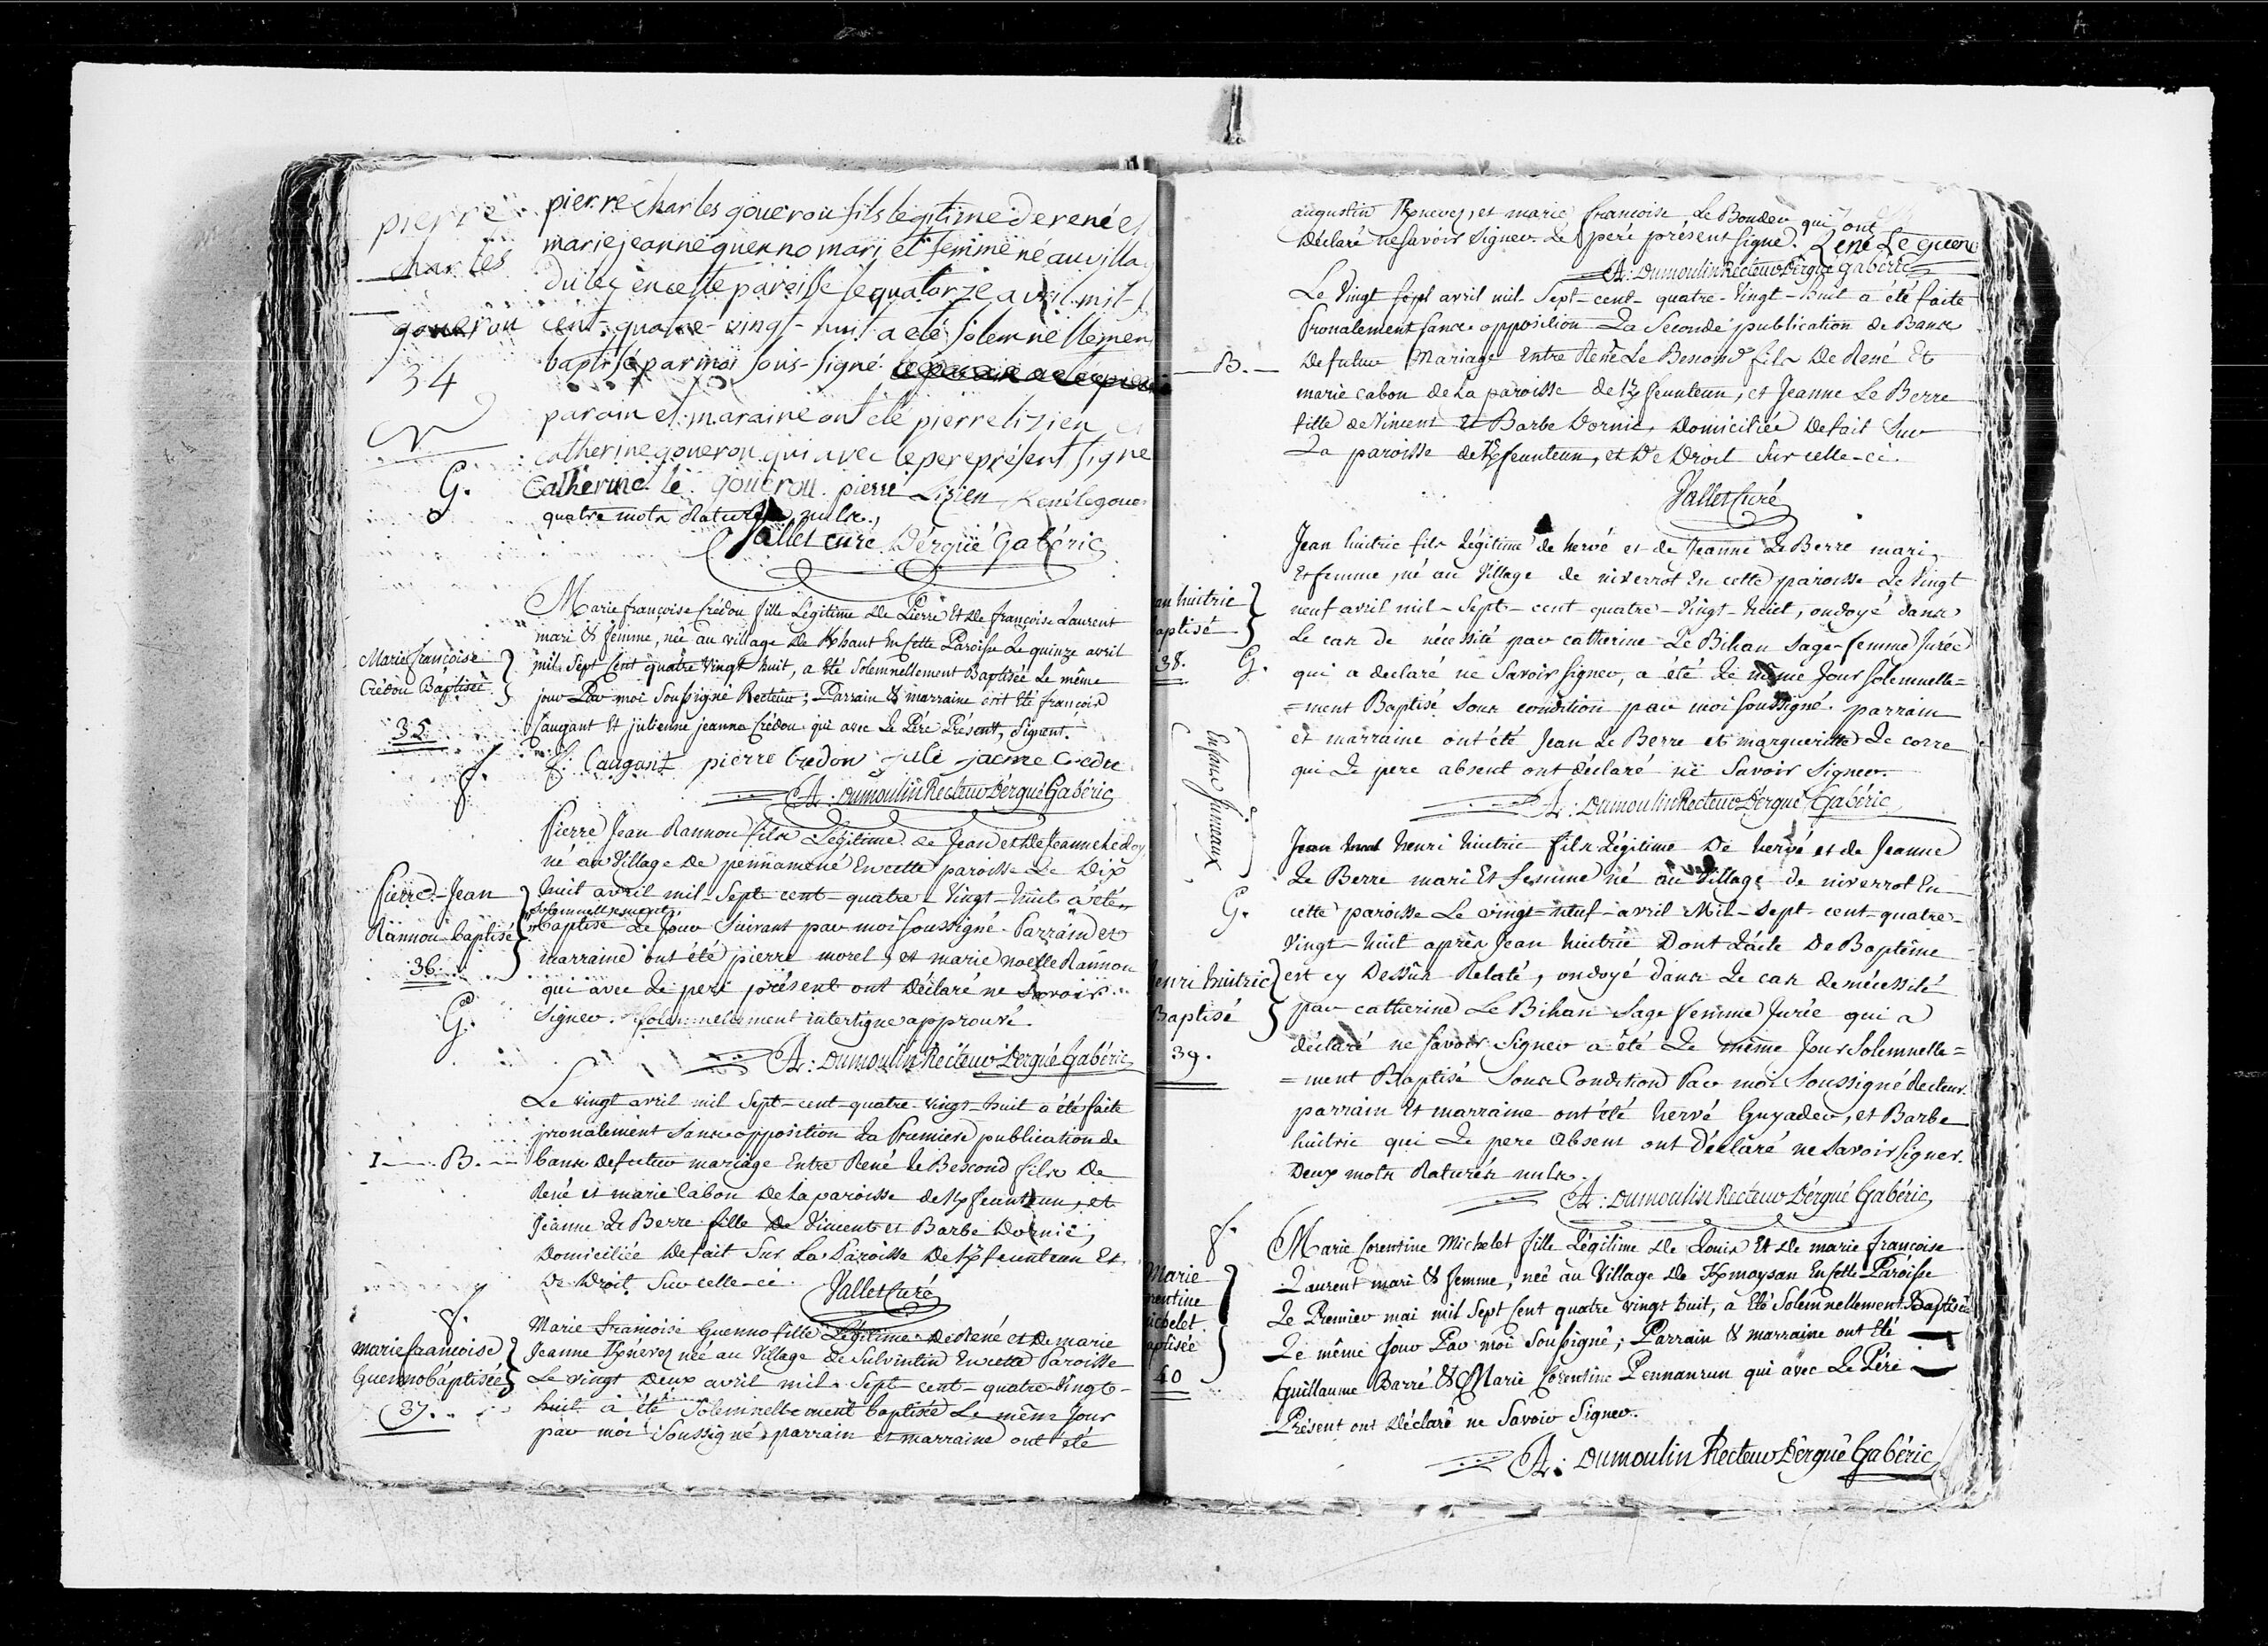 pierre
charles
goueron
34
G.
pierre charles goueron fils legitime de rené et
marie jeanne guenno mari et femme né au villa
du lez en cette paroisse le quatorze avril mil-s
cent-quatre-vingt-huit a eté solemnellemen
baptisé par moi sous-signé
parain et maraine ont eté pierre lizien et
catherine goueron qui avec le pere présent signe
Catherine le gouerou pierre Lizien René le goue
quatre mots Raturés nuls.
Vallet curé D'ergué Gabéric
Marie françoise Crédou fille Légitime de Pierre Et de françoise Laurent
mari & femme, née au village de Khaut En Cette Paroisse Le quinze avril
mil Sept Cent quatre Vingt huit, a Eté Solemnellement Baptisée Le même
jour Par moi Soussigné Recteur; Parrain & marraine ont Eté françois
Caugant Et julienne jeanne Crédou qui avec Le Péré Présent, Signent.
Marie françoise
Crédou Baptisée
35
f.
f. Caugant pierre Credou
A: Dumoulin Recteur D'ergué Gabéric
Pierre Jean Rannou fils Légitime de Jean et de Jeanne
né au Village de pennamené En cette paroisse Le Dix
huit avril mil-Sept-cent-quatre-Vingt-huit a été
solemnellement
baptisé Le Jour Suivant par moi soussigné. Parrain et
marraine ont été pierre morel, et marie noelle Rannou
qui avec Le peré présent ont Déclaré ne Savoir
Signer. Solemnellement interligne approuvé.
Pierre-Jean
Rannou baptisé
36
G.
A: Dumoulin Recteur D'ergué Gabéric
Le vingt avril mil Sept-cent-quatre-vingt-huit a été faite
pronalement Sans opposition La Premiere publication de
I — B. — bans de futur mariage Entre René Le Bescond fils De
René et marie Cabon De La paroisse de Kfeunteun, et
Jeanne Le Berre fille De Vincent et Barbe Dornic,
Domiciliée De fait Sur La Paroisse De Kfeunteun Et
De Droit Sur celle-ci. Vallet Curé
f.
marie françoise
Guenno baptisée
37.
Marie françoise Guenno fille Légitime de René et De marie
Jeanne Kneves née au Village de Sulvintin En cette Paroisse
Le vingt Deux avril mil Sept-cent-quatre-Vingt-
huit a été Solemnellement baptisée Le même Jour
par moi Soussigné parrain et marraine ont été
augustin Kneves, et marie françoise Le Bouder qui ont
Déclaré ne Savoir Signer. Le peré présent signe. René Le guen
A: Dumoulin Recteur D'ergué Gabéric
Le Vingt Sept avril mil-Sept-cent-quatre-Vingt-huit a été faite
Pronalement sans opposition La Seconde publication de Bans
— B. — De futur Mariage Entre René Le Bescond fils De René Et
marie Cabon de La paroisse de Kfeunteun, et Jeanne Le Berre
fille de Vincent et Barbe Dornic, Domiciliée De fait Sur
La paroisse de Kfeunteun, et De Droit Sur celle-ci.
Vallet Curé
Jean huitric fils Légitime de hervé et de Jeanne Le Berre mari
Et femme, né au Village de niverrot En cette paroisse Le Vingt
neuf avril mil-Sept-cent quatre-Vingt-huit, ondoyé dans
Le cas de nécessité par catherine Le Bihan Sage-femme Jurée
qui a declaré ne Savoir Signer, a été Le même Jour Solemnelle=
=ment Baptisé Sous condition par moi Soussigné. parrain
et marraine ont été Jean Le Berre et margueritte Le corre
qui Le pere absent ont déclaré ne Savoir Signer.
an huitric
aptisé
38. G.
Enfans Jumeaux
A: Dumoulin Recteur D'ergué Gabéric
henri huitric fils Légitime De hervé et de Jeanne
Le Berre mari Et femme né au Village de niverrot En
cette paroisse Le vingt-neuf-avril Mil-Sept-cent-quatre-
Vingt-huit après Jean huitric Dont L'acte De Baptême
est cy Dessus Relaté, ondoyé dans Le cas de nécessité
par catherine Le Bihan Sage femme Jurée qui a
déclaré ne Savoir Signer a été Le même Jour Solemnelle=
=ment Baptisé Sous Condition Par moi Soussigné Recteur.
parrain Et marraine ont été hervé Guyader, et Barbe
huitric qui Le pere Absent ont Déclaré ne Savoir Signer.
Deux mots Raturés nuls.
G.
enri huitric
Baptisé
39.
A: Dumoulin Recteur D'ergué Gabéric
f.
Marie
rentine
ichelet
aptisée
40
Marie Corentine Michelet fille Légitime de Louis Et de marie françoise
Laurent mari & femme, née au Village de Kmoysan En Cette Paroisse
Le Premier mai mil Sept Cent quatre Vingt huit, a Eté Solemnellement Baptisée
Le même Jour Par moi Soussigné; Parrain & marraine ont Eté
Guillaume Barré & Marie Corentine Pennanrun qui avec Le Péré
Présent ont Déclaré ne Savoir Signer.
A: Dumoulin Recteur D'ergué Gabéric